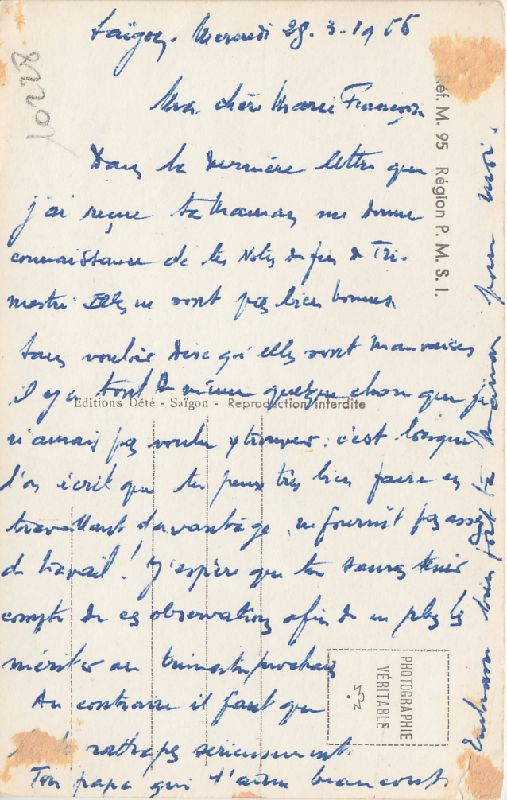 Saïgon. Mercredi 28.3.1956
10228
Ma chère Marie Françoise
Dans la dernière lettre que
j'ai reçue ta Maman me donne
connaissance de tes Notes de fin de Tri-
mestre Elles ne sont pas bien bonnes
Sans vouloir dire qu'elles sont mauvaises
il y a tout de même quelque chose que je
n'aurais pas voulu y trouver : c'est lorsque
l'on écrit que tu peux très bien faire en
travaillant davantage, ne fournit pas assez
de travail ! J'espère que tu sauras tenir
compte de ces observations afin de ne plus les
mériter au trimestre prochain
Au contraire il faut que
rattrapes sérieusement.
Ton papa qui t'aime beaucoup.
Embrasse bien fort ta Maman pour moi.
Réf. M. 95 Région P. M. S. I.
Editions Dété - Saïgon - Reproduction interdite
PHOTOGRAPHIE
VÉRITABLE